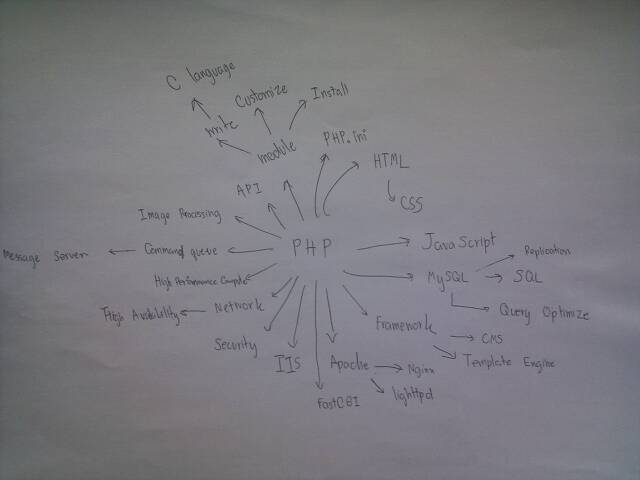 C language
Customize
Install
write
module
PHP.ini
HTML
API
CSS
Image Processing
PHP
JavaScript
Message Server
Command queue
Replication
High Performance Compute
MySQL
SQL
High Availability
Network
Query Optimize
Framework
CMS
Security
IIS
Apache
Nginx
Template Engine
FastCGI
lighttpd